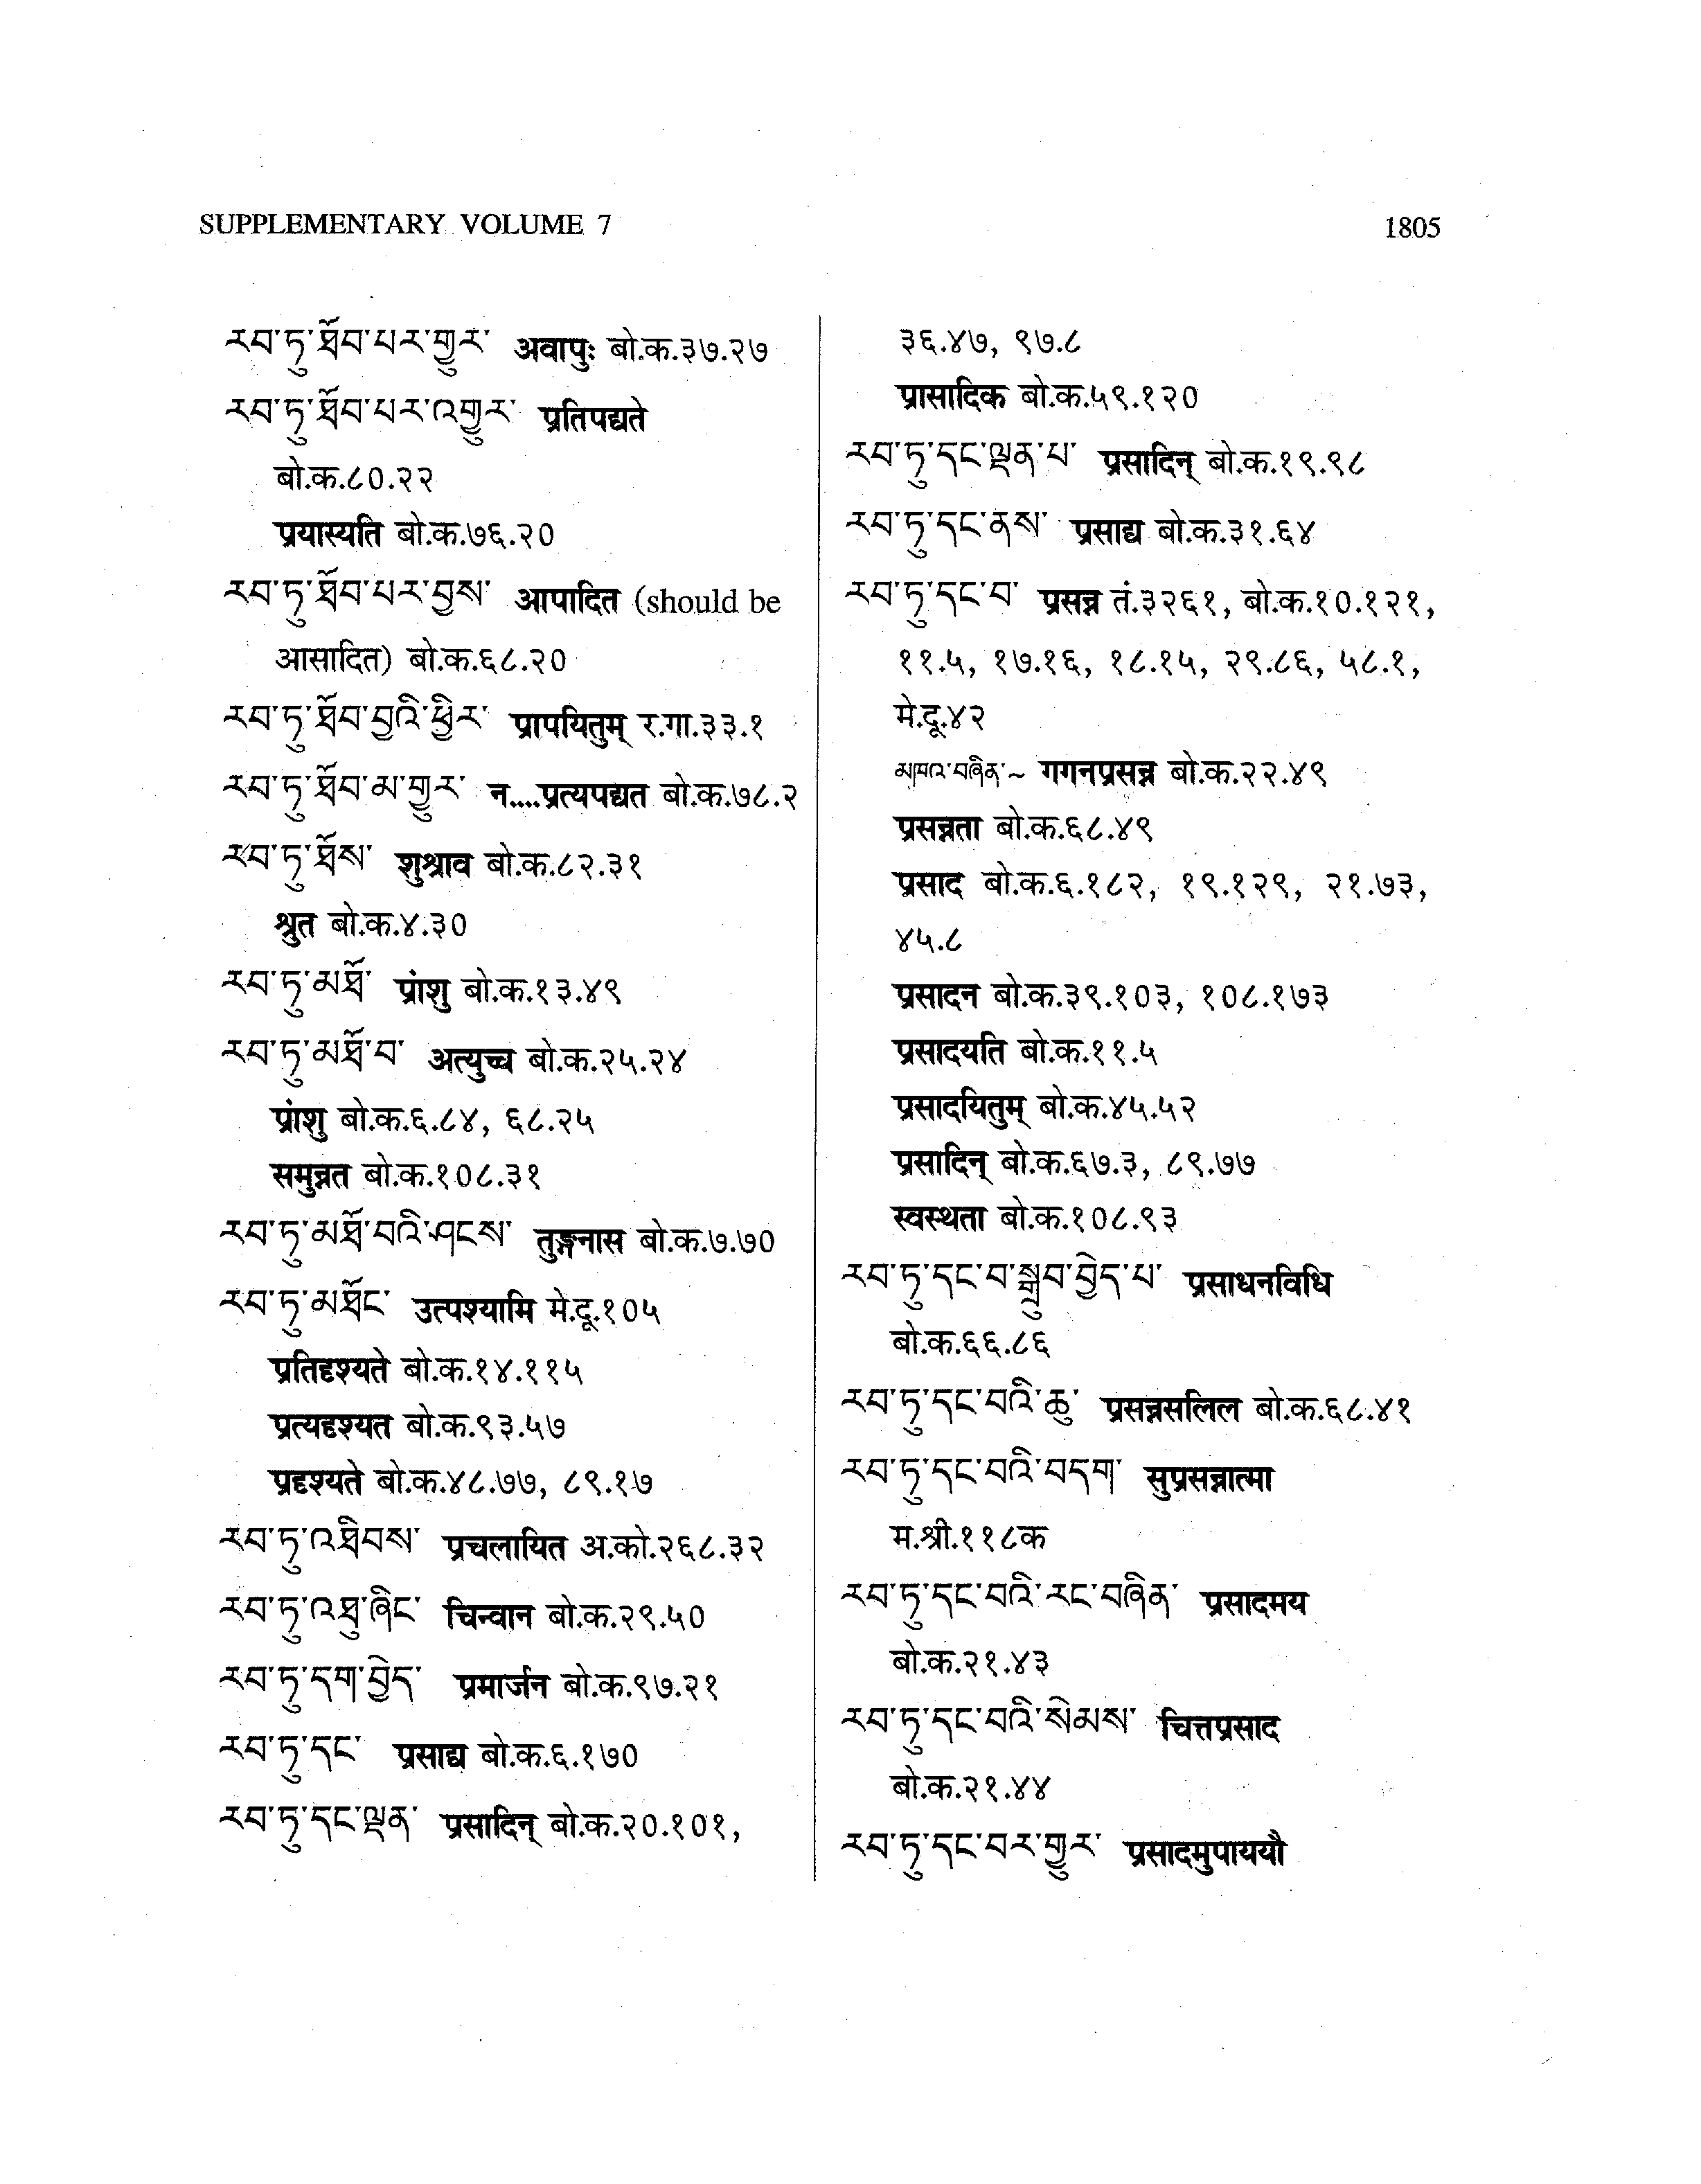 SUPPLEMENTARY VOLUME 7
1805
རབ་ཏུ་ཐོབ་པར་གྱུར་ अवापुः बो.क.३७.२७
རབ་ཏུ་ཐོབ་པར་འགྱུར་ प्रतिपद्यते
बो.क.८०.२२
प्रयास्यति बो.क.७६.२०
རབ་ཏུ་ཐོབ་པར་བྱས་ आपादित (should be
आसादित) बो.क.६८.२०
རབ་ཏུ་ཐོབ་བྱའི་ཕྱིར་ प्रापयितुम् र.गा.३३.१
རབ་ཏུ་ཐོབ་མ་གྱུར་ न....प्रत्यपद्यत बो.क.७८.२
རབ་ཏུ་ཐོས་ शुश्राव बो.क.८२.३१
श्रुत बो.क.४.३०
རབ་ཏུ་མཐོ་ प्रांशु बो.क.१३.४९
རབ་ཏུ་མཐོ་བ་ अत्युच्च बो.क.२५.२४
प्रांशु बो.क.६.८४, ६८.२५
समुन्नत बो.क.१०८.३१
རབ་ཏུ་མཐོ་བའི་ཤངས་ तुङ्गनास बो.क.७.७०
རབ་ཏུ་མཐོང་ उत्पश्यामि मे.दू.१०५
प्रतिदृश्यते बो.क.१४.११५
प्रत्यदृश्यत बो.क.९३.५७
प्रदृश्यते बो.क.४८.७७, ८९.१७
རབ་ཏུ་འཐིབས་ प्रचलायित अ.को.२६८.३२
རབ་ཏུ་འཐུ་ཞིང་ चिन्वान बो.क.२९.५०
རབ་ཏུ་དག་བྱེད་ प्रमार्जन बो.क.९७.२१
རབ་ཏུ་དང་ प्रसाद्य बो.क.६.१७०
རབ་ཏུ་དང་ལྡན་ प्रसादिन् बो.क.२०.१०१,
३६.४७, ९७.८
प्रासादिक बो.क.५९.१२०
རབ་ཏུ་དང་ལྡན་པ་ प्रसादिन् बो.क.१९.९८
རབ་ཏུ་དང་ནས་ प्रसाद्य बो.क.३१.६४
རབ་ཏུ་དང་བ་ प्रसन्न तं.३२६१, बो.क.१०.१२१,
११.५, १७.१६, १८.१५, २९.८६, ५८.१,
मे.दू.४२
མཁའ་བཞིན་~ गगनप्रसन्न बो.क.२२.४९
प्रसन्नता बो.क.६८.४९
प्रसाद बो.क.६.१८२, १९.१२९, २१.७३,
४५.८
प्रसादन बो.क.३९.१०३, १०८.१७३
प्रसादयति बो.क.११.५
प्रसादयितुम् बो.क.४५.५२
प्रसादिन् बो.क.६७.३, ८९.७७
स्वस्थता बो.क.१०८.९३
རབ་ཏུ་དང་བ་སྒྲུབ་བྱེད་པ་ प्रसाधनविधि
बो.क.६६.८६
རབ་ཏུ་དང་བའི་ཆུ་ प्रसन्नसलिल बो.क.६८.४१
རབ་ཏུ་དང་བའི་བདག་ सुप्रसन्नात्मा
म.श्री.११८क
རབ་ཏུ་དང་བའི་རང་བཞིན་ प्रसादमय
बो.क.२१.४३
རབ་ཏུ་དང་བའི་སེམས་ चित्तप्रसाद
बो.क.२१.४४
རབ་ཏུ་དང་བར་གྱུར་ प्रसादमुपाययौ